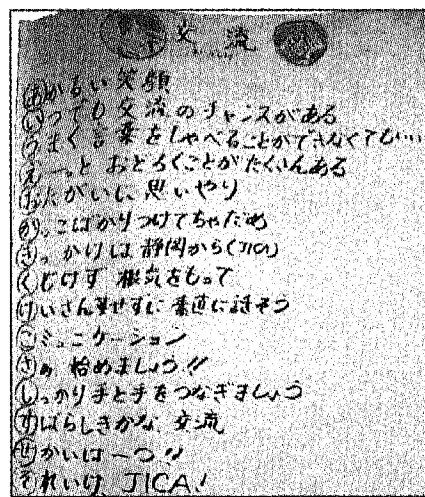 交流
あかるい笑顔
いつでも交流のチャンスがある
うまく言葉をしゃべることができなくても…
えーっとおどろくことがたくさんある
おたがいに思いやり
かっこばかりつけてちゃだめ
きっかけは静岡から(JICA)
くじけず根気をもって
けいさん 素直に話そう
こミュニケーション
さぁ始めましょう!!
しっかり手と手をつなぎましょう
すばらしきかな、交流
せかいは一つ!!
それいけ、JICA!